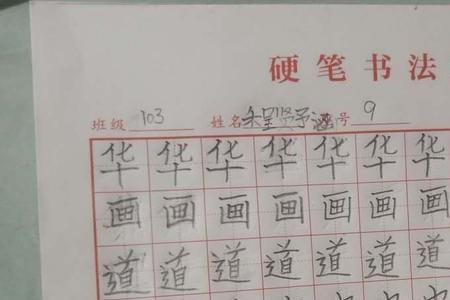 硬笔书法
班级 103 姓名 号 9
华华华华华华华
画画画画画画画
道道道道道道道